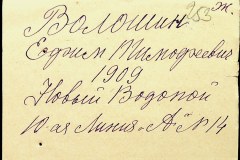 253 ж.
Волошин
Ефим Тимофеевич
1909
Новый Водопой
10-ая Линия-А" N 14